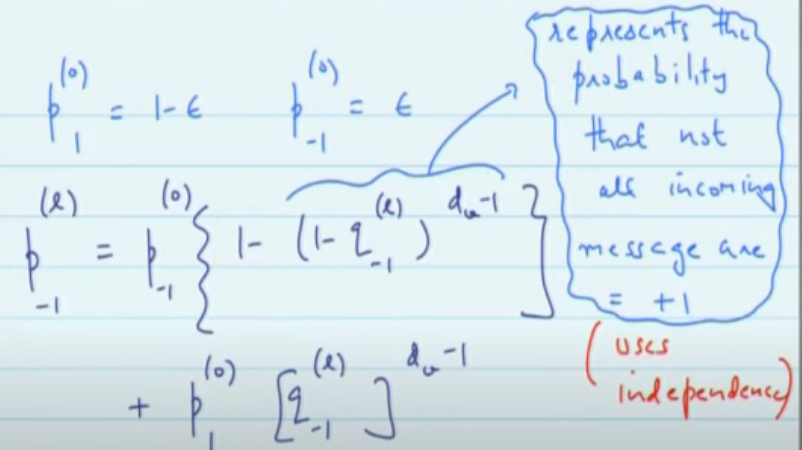 p_1^(0) = 1-ϵ   p_{-1}^(0) = ϵ
p_{-1}^(l) = p_{-1}^(0) { 1- (1- q_{-1}^(l))^{d_v-1} ]
+ p_1^(0) [q_{-1}^(l)]^{d_v-1}
represents the
probability
that not
all incoming
message are
= +1
(uses
independence)